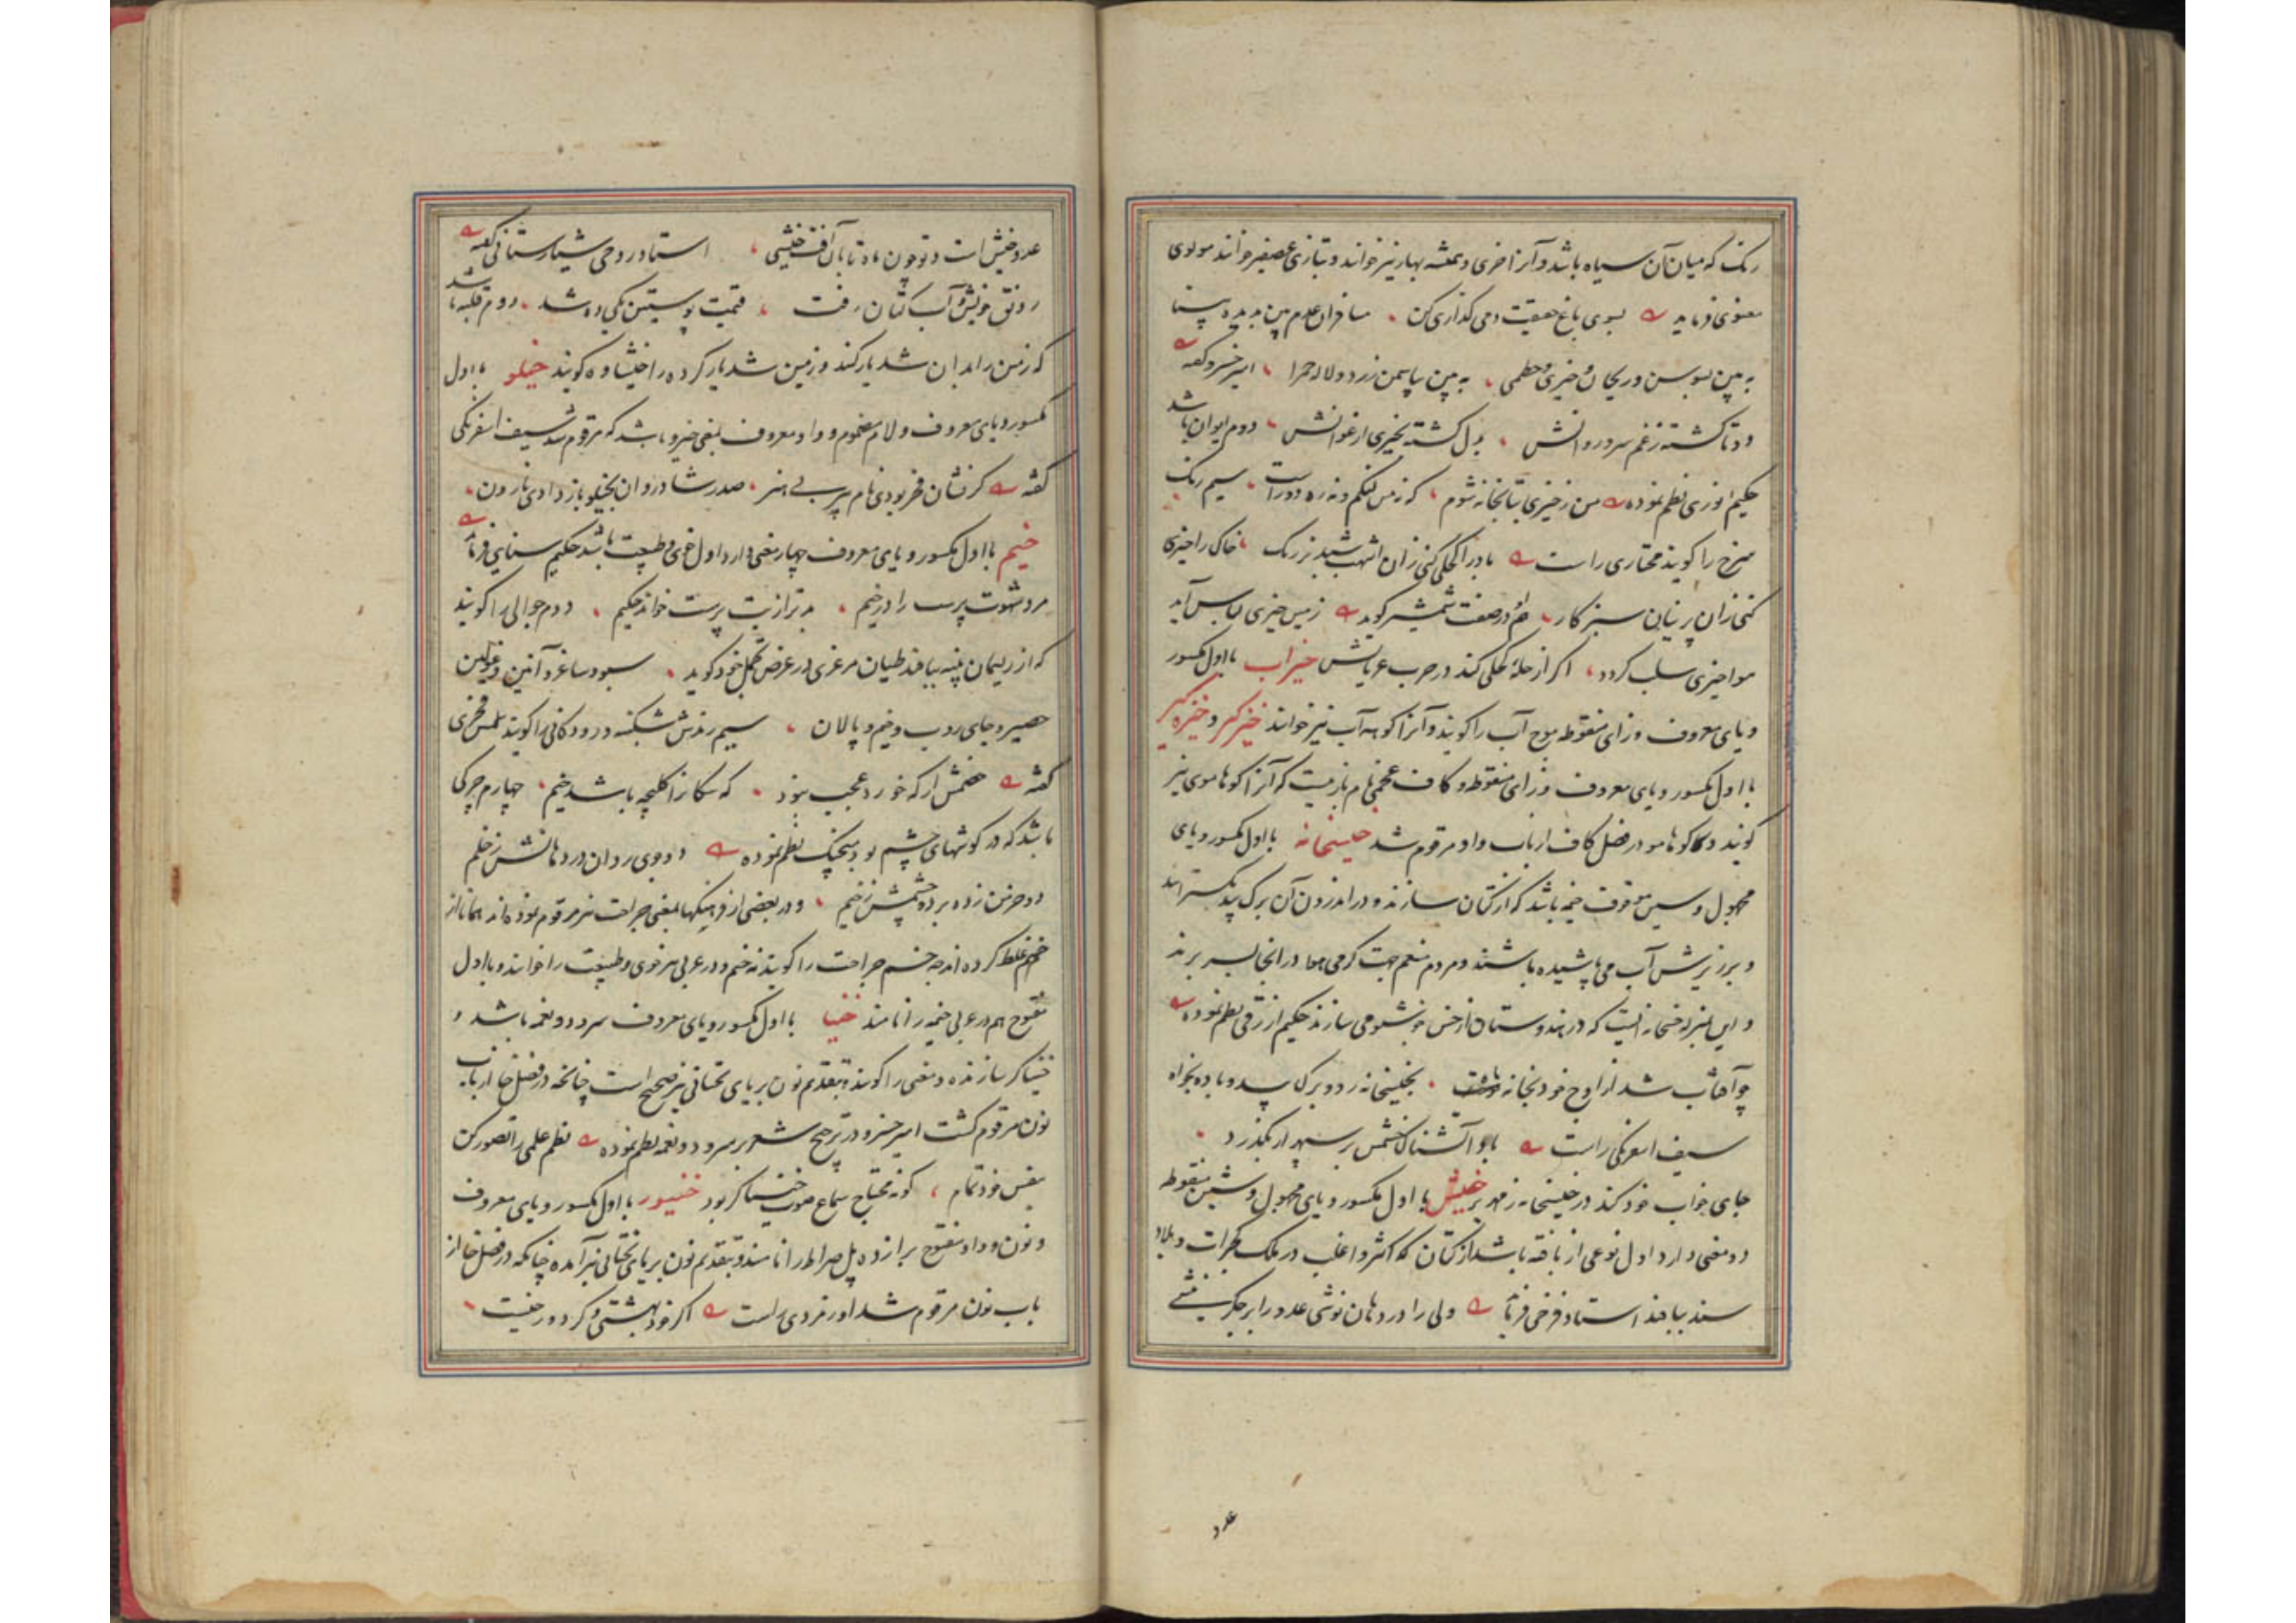 رنک که میان آن سیاه باشد و آنرا خری و همیشه بهار نیز خوانند و بتازی عصفر خوانند مولوی
معنوی فرماید بسوی باغ حقیقت دمی کذاری کن مسافران عدم بین بدیده بینا
به بین بسوسن و ریحان و خیری و خطمی به بین بیاسمن زرد و لاله حمرا امیر خسرو کفته
دوتا کشته ز غم سرو روانش بدل کشته بخیری ارغوانش دوم ایوان باشد
حکیم انوری نظم نموده من ز خیری بتابخانه شوم که نه من لنکم و نه ره دوراست سیم رنک
سرخ را کویند مختاری راست باد را کحلی کنی زان اشهب شبدیز رنک خاک را خیری
کنی زان پرنیان سبز کار هم او در صفت شمشیر کوید زمین خیری لباس آید
هوا خیری سلب کردد اکر از حله کحلی کند در حرب عریانش خیزاب با اول مکسور
و یای معروف و زای منقوطه موج آب را کویند و آنرا کوهه آب نیز خوانند خیزکیر و خیزه کیر
با اول مکسور و یای معروف و زای منقوطه و کاف عجمی نام بازیست که آنرا کوهاموی نیز
کویند و کوهامو در فصل کاف از باب واو مرقوم شد خیسخانه با اول مکسور و یای
مجهول و سین موقوف خیمه باشد که از کتان سازند و در اندرون آن برک بید بکسترانند
و بر زبرش آب می پاشیده باشند و مردم منعم جهت کرمی هوا در آنجا بسر برند
و این بمنزله خسخانه ایست که در هندوستان از خس خوشبو می سازند حکیم ازرقی نظم نموده
چو آفتاب شد از اوج خود بخانه بخیشخانه رو و برک بید و باده بخواه
سیف اسفرنکی راست با هوا آتشناک خشمش بر سپهر ار بکذرد
جای خواب خود کند در خیشخانه زمهریر خیش با اول مکسور و یای مجهول و شین منقوطه
دو معنی دارد اول نوعی از بافته باشد از کتان که اکثر و اغلب در ملک کجرات و بلاد
سند ببافند استاد فرخی فرماید ولی را در دهان نوشی عدو را بر جکر نیشی
عدو
عدو خیش است و تو چون ماه تابان آفت خیشی استاد روحی شیارستانی کفته
رونق خیش و آب کتان رفت قیمت پوستین یکی ده شد دوم قلبه باشد
که زمین را بدان شدیار کنند و زمین شدیار کرده را خیشاوه کویند خیلو با اول
مکسور و یای معروف و لام مضموم و واو معروف بمعنی خیرو باشد که مرقوم شد سیف اسفرنکی
کفته کز نشان فخر بودی نام پیر بی هنر صدر شادروان بخیلو باز دادی نارون
خیم با اول مکسور و یای معروف چهار معنی دارد اول خوی و طبیعت باشد حکیم سنایی فرماید
مرد شهوت پرست را در خیم بدتر از بت پرست خواند حکیم دوم جوالی را کویند
که از ریسمان پنبه ببافند طیان مرغزی در عرض تجمل خود کوید سبو و ساغر و آنین و غولین
حصیر و جای روب و خیم و پالان سیم رندش شکنبه و رودکانی را کویند شمس فخری
کفته خصمش ار که خورد عجب نبود که سکان را کلیجه باشد خیم چهارم چرکی
باشد که در کوشهای چشم بود منجیک نظم نموده دو جوی روان در دهانش ز خلم
دو خرمن زده بر دو چشمش ز خیم و در بعضی از فرهنکها بمعنی جراحت نیز مرقوم نموده اند همانا از
خم غلط کرده اند چه خسم جراحت را کویند نه خیم و در عربی نیز خوی و طبیعت را خوانند و با اول
مفتوح هم در عربی خیمه را نامند خینا با اول مکسور و یای معروف سرود و نغمه باشد و
خنیاکر سازنده و مغنی را کویند و بتقدیم نون بر یای تحتانی نیز صحیح است چنانچه در فصل خا از باب
نون مرقوم کشت امیر خسرو در ترجیح شعر بر سرود و نغمه نظم نموده نظم علمی را تصور کن
بنفس خود تمام کو نه محتاج سماع و صوت خنیاکر بود خینور با اول مکسور و یای معروف
و نون و واو مفتوح برا زده پل صراط را نامند و بتقدیم نون بر یای تحتانی نیز آمده چنانکه در فصل خا از
باب نون مرقوم شد اورمزدی راست اکر خود بهشتی و کر دوزخیست